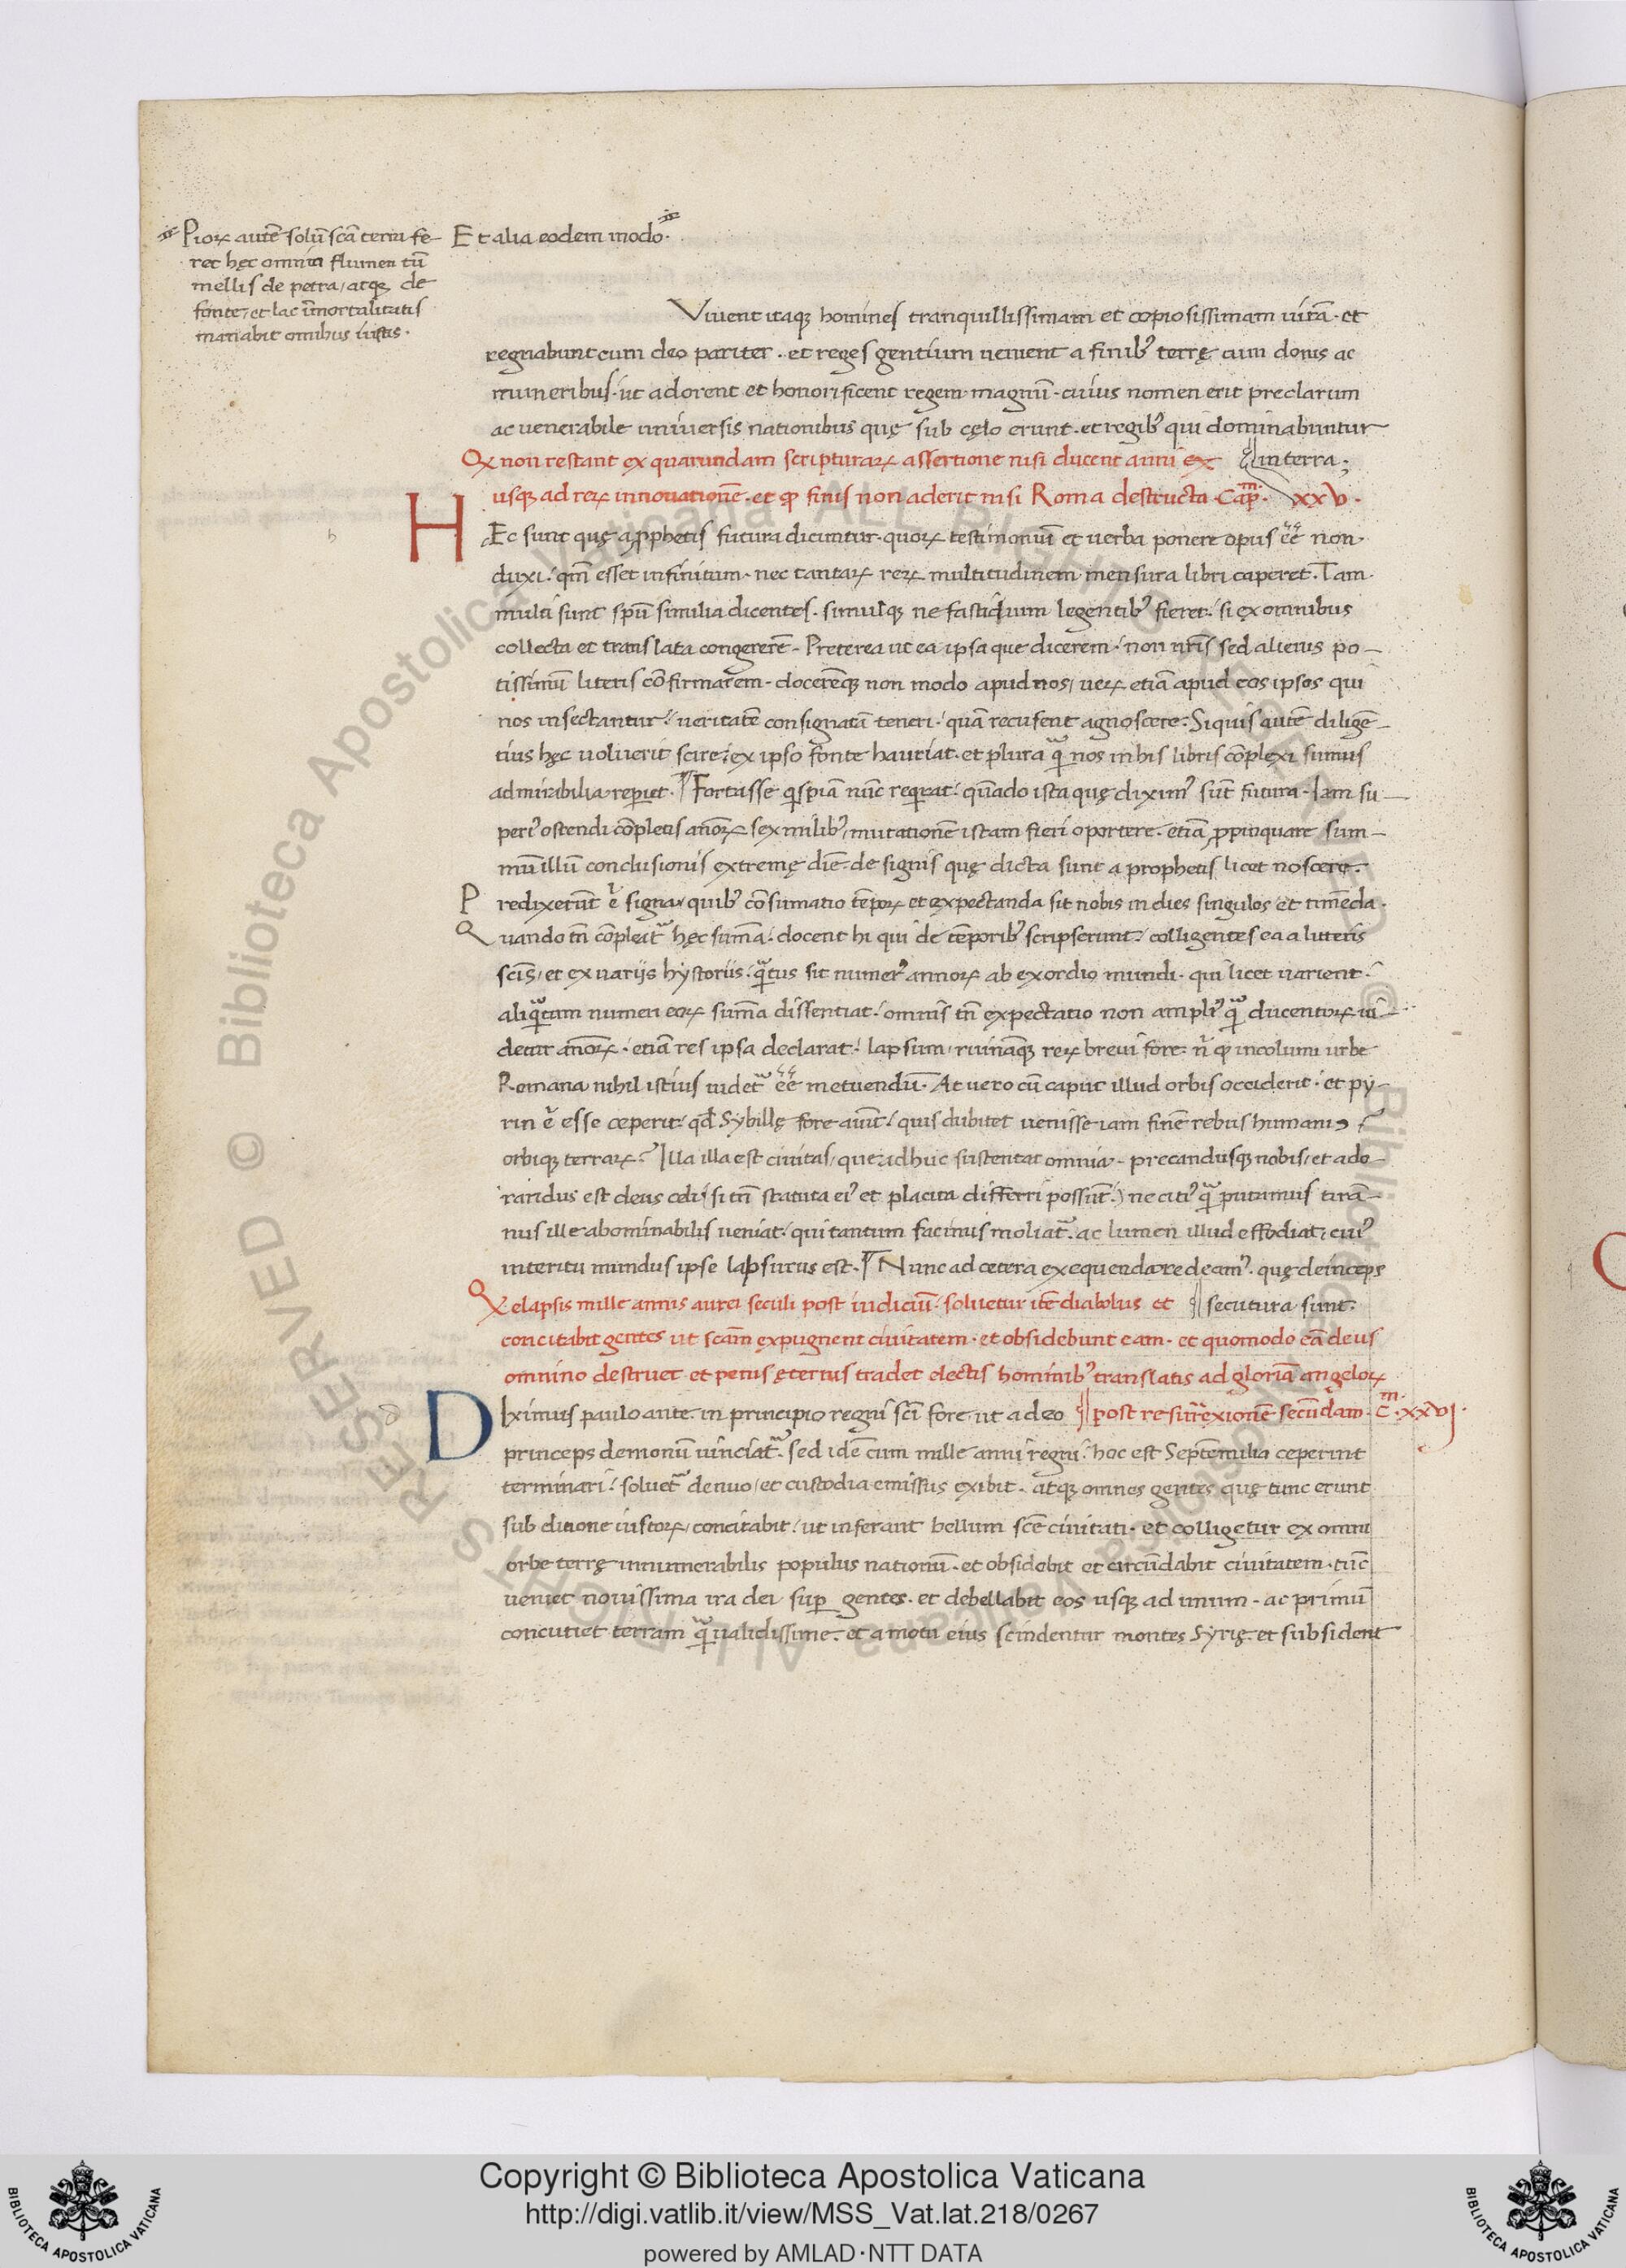 Pioꝝ autē solū scā terra fe-
ret hęc omnia flumen tū
mellis de petra, atqꝫ de
fonte, et lac īmortalitatis
manabit omnibus iustis.
Et alia eodem modo.
Viuent itaqꝫ homines tranquillissimam et copiosissimam uitā. et
regnabunt cum deo pariter. et reges gentium uenient a finibꝰ terrę cum donis ac
muneribus. ut adorent et honorificent regem magnū. cuius nomen erit preclarum
ac uenerabile uniuersis nationibus quę sub cęlo erunt. et regibꝰ qui dominabuntur
in terra;
Ꝙ non restant ex quarundam scripturaꝝ assertione nisi ducenti anni ex
usqꝫ ad reꝝ innouationē. et ꝙ finis non aderit nisi Roma destructa. Cap̄m. xxv.
HEc sunt quę a ꝓphetis futura dicuntur. quoꝝ testimoniū et uerba ponere opus eē non
duxi. qm̄ esset infinitum. nec tantaꝝ reꝝ multitudinem mensura libri caperet. Tam
multi sunt spū similia dicentes. simulqꝫ ne fastidium legentibꝰ fieret. si ex omnibus
collecta et translata congererē. Preterea ut ea ipsa que dicerem. non nr̄is sed alienis po-
tissimū literis cōfirmarem. docerēqꝫ non modo apud nos, ueꝝ etiā apud eos ipsos qui
nos insectantur. ueritatē consignatā teneri. quā recusent agnoscere. Siquis autē diligē-
tius hęc uoluerit scire. ex ipso fonte hauriat. et plura q̄ nos in his libris cōplexi sumus
admirabilia reperiet. Fortasse qispiā nūc reqirat. qn̄ado ista quę diximꝰ sūt futura. Iam su-
periꝰ ostendi cōpletis an̄oꝝ sex milibꝰ, mutationē istam fieri oportere. etiā ꝓpinquare sum-
mū illū conclusionis extremę diē. de signis quę dicta sunt a prophetis licet noscere.
Predixerūt .n. signa quibꝰ cōsumatio tēpoꝝ et expectanda sit nobis in dies singulos et timēda.
Quando tn̄ cōpleatr hęc sum̄a. docent hi qui de tēporibꝰ scripserunt. colligentes ea a litteris
scīs, et ex uarijs hystoriis. q̄tus sit numerꝰ annoꝝ ab exordio mundi. qui licet uarient.
aliq̄tum numeri eoꝝ sum̄a dissentiat. omnis tn̄ expectatio non ampliꝰ q̄ ducentoꝝ ui-
detur an̄oꝝ. etiā res ipsa declarat. lapsum, ruināqꝫ reꝝ breui fore. n̄ ꝙ incolumi urbe
Romana nihil istius uidetr eē metuendū. At uero cū caput illud orbis occiderit. et py-
rin .n. esse ceperit. qd̄ Sybillę fore aiūt. quis dubitet uenisse iam finē rebus humanis
orbiqꝫ terraꝝ? Illa illa est ciuitas, que adhuc sustentat omnia. precandusqꝫ nobis, et ado-
randus est deus celi (si tn̄ statuta eiꝰ et placita differri possūt.) ne citiꝰ q̄ putamus tirā-
nus ille abominabilis ueniat. qui tantum facinus moliatr. ac lumen illud effodiat, cuiꝰ
interitu mundus ipse lapsurus est. Nunc ad cetera exequenda redeamꝰ. quę deinceps
secutura sunt.
Ꝙ elapsis mille annis aurei seculi post iudiciū. soluetur itē diabolus et
concitabit gentes ut scām expugnent ciuitatem. et obsidebunt eam. et quomodo eā deus
omnino destruet. et penis ęternis tradet electis hominibꝰ translatis ad gloriā angeloꝝ
post resurrexionē secūdam. C̄m. xxvj.
DIximus paulo ante. in principio regni scī fore, ut a deo
princeps demonū uinciatr. sed idē cum mille anni regni. hoc est Septēmilia ceperint
terminari. soluetr denuo, et custodia emissus exibit. atqꝫ omnes gentes quę tunc erunt
sub ditione iustoꝝ, concitabit. ut inferant bellum scē ciuitati. et colligetur ex omni
orbe terrę innumerabilis populus nationū. et obsidebit et circūdabit ciuitatem. tūc
ueniet nouissima ira dei suꝑ gentes. et debellabit eos usqꝫ ad unum. ac primū
concutiet terram q̄ualidissime. et a motu eius scindentur montes Syrię. et subsident
Copyright © Biblioteca Apostolica Vaticana
http://digi.vatlib.it/view/MSS_Vat.lat.218/0267
powered by AMLAD·NTT DATA
BIBLIOTECA APOSTOLICA VATICANA
BIBLIOTECA APOSTOLICA VATICANA
Biblioteca Apostolica Vaticana ALL RIGHTS RESERVED ©
Biblioteca Apostolica Vaticana ALL RIGHTS RESERVED ©